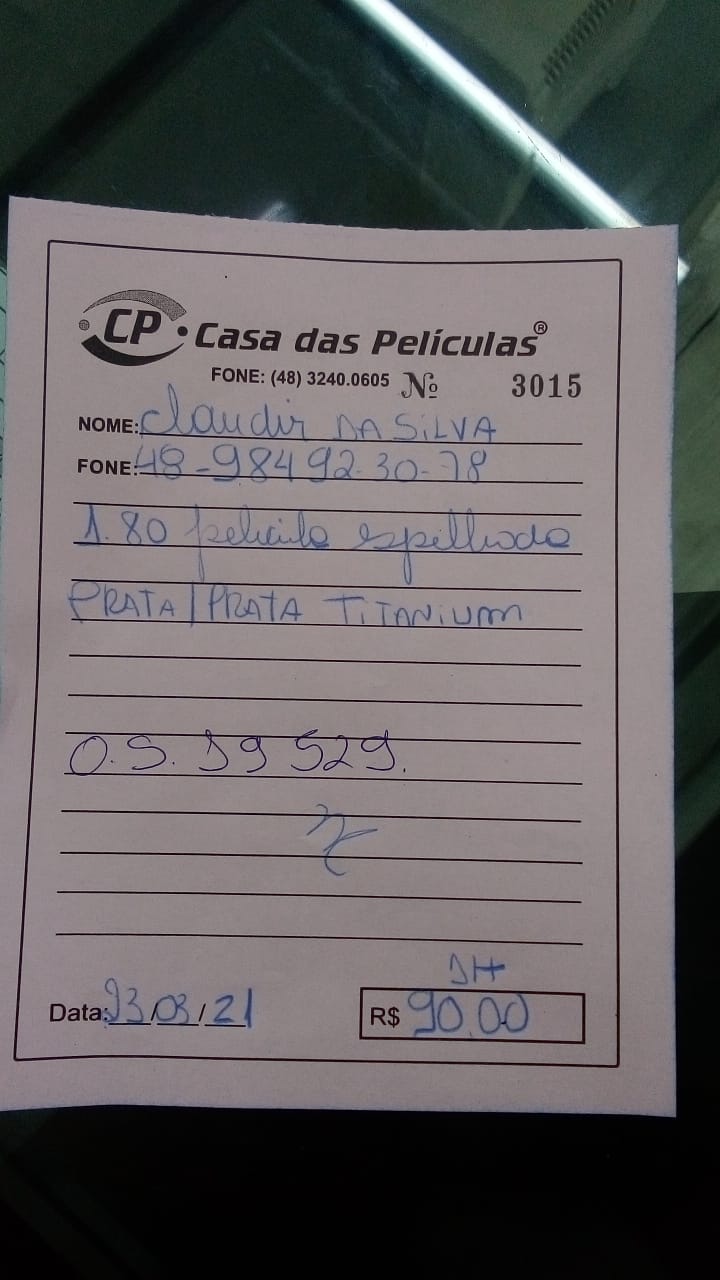 CP • Casa das Películas®
FONE: (48) 3240.0605 Nº 3015
NOME: Claudir DA SILVA
FONE: 48-98492-30-78
1.80 pelicula espelhada
PRATA/PRATA TITANIUM
O.S. 19529.
DH
Data: 23/03/21 R$ 90,00